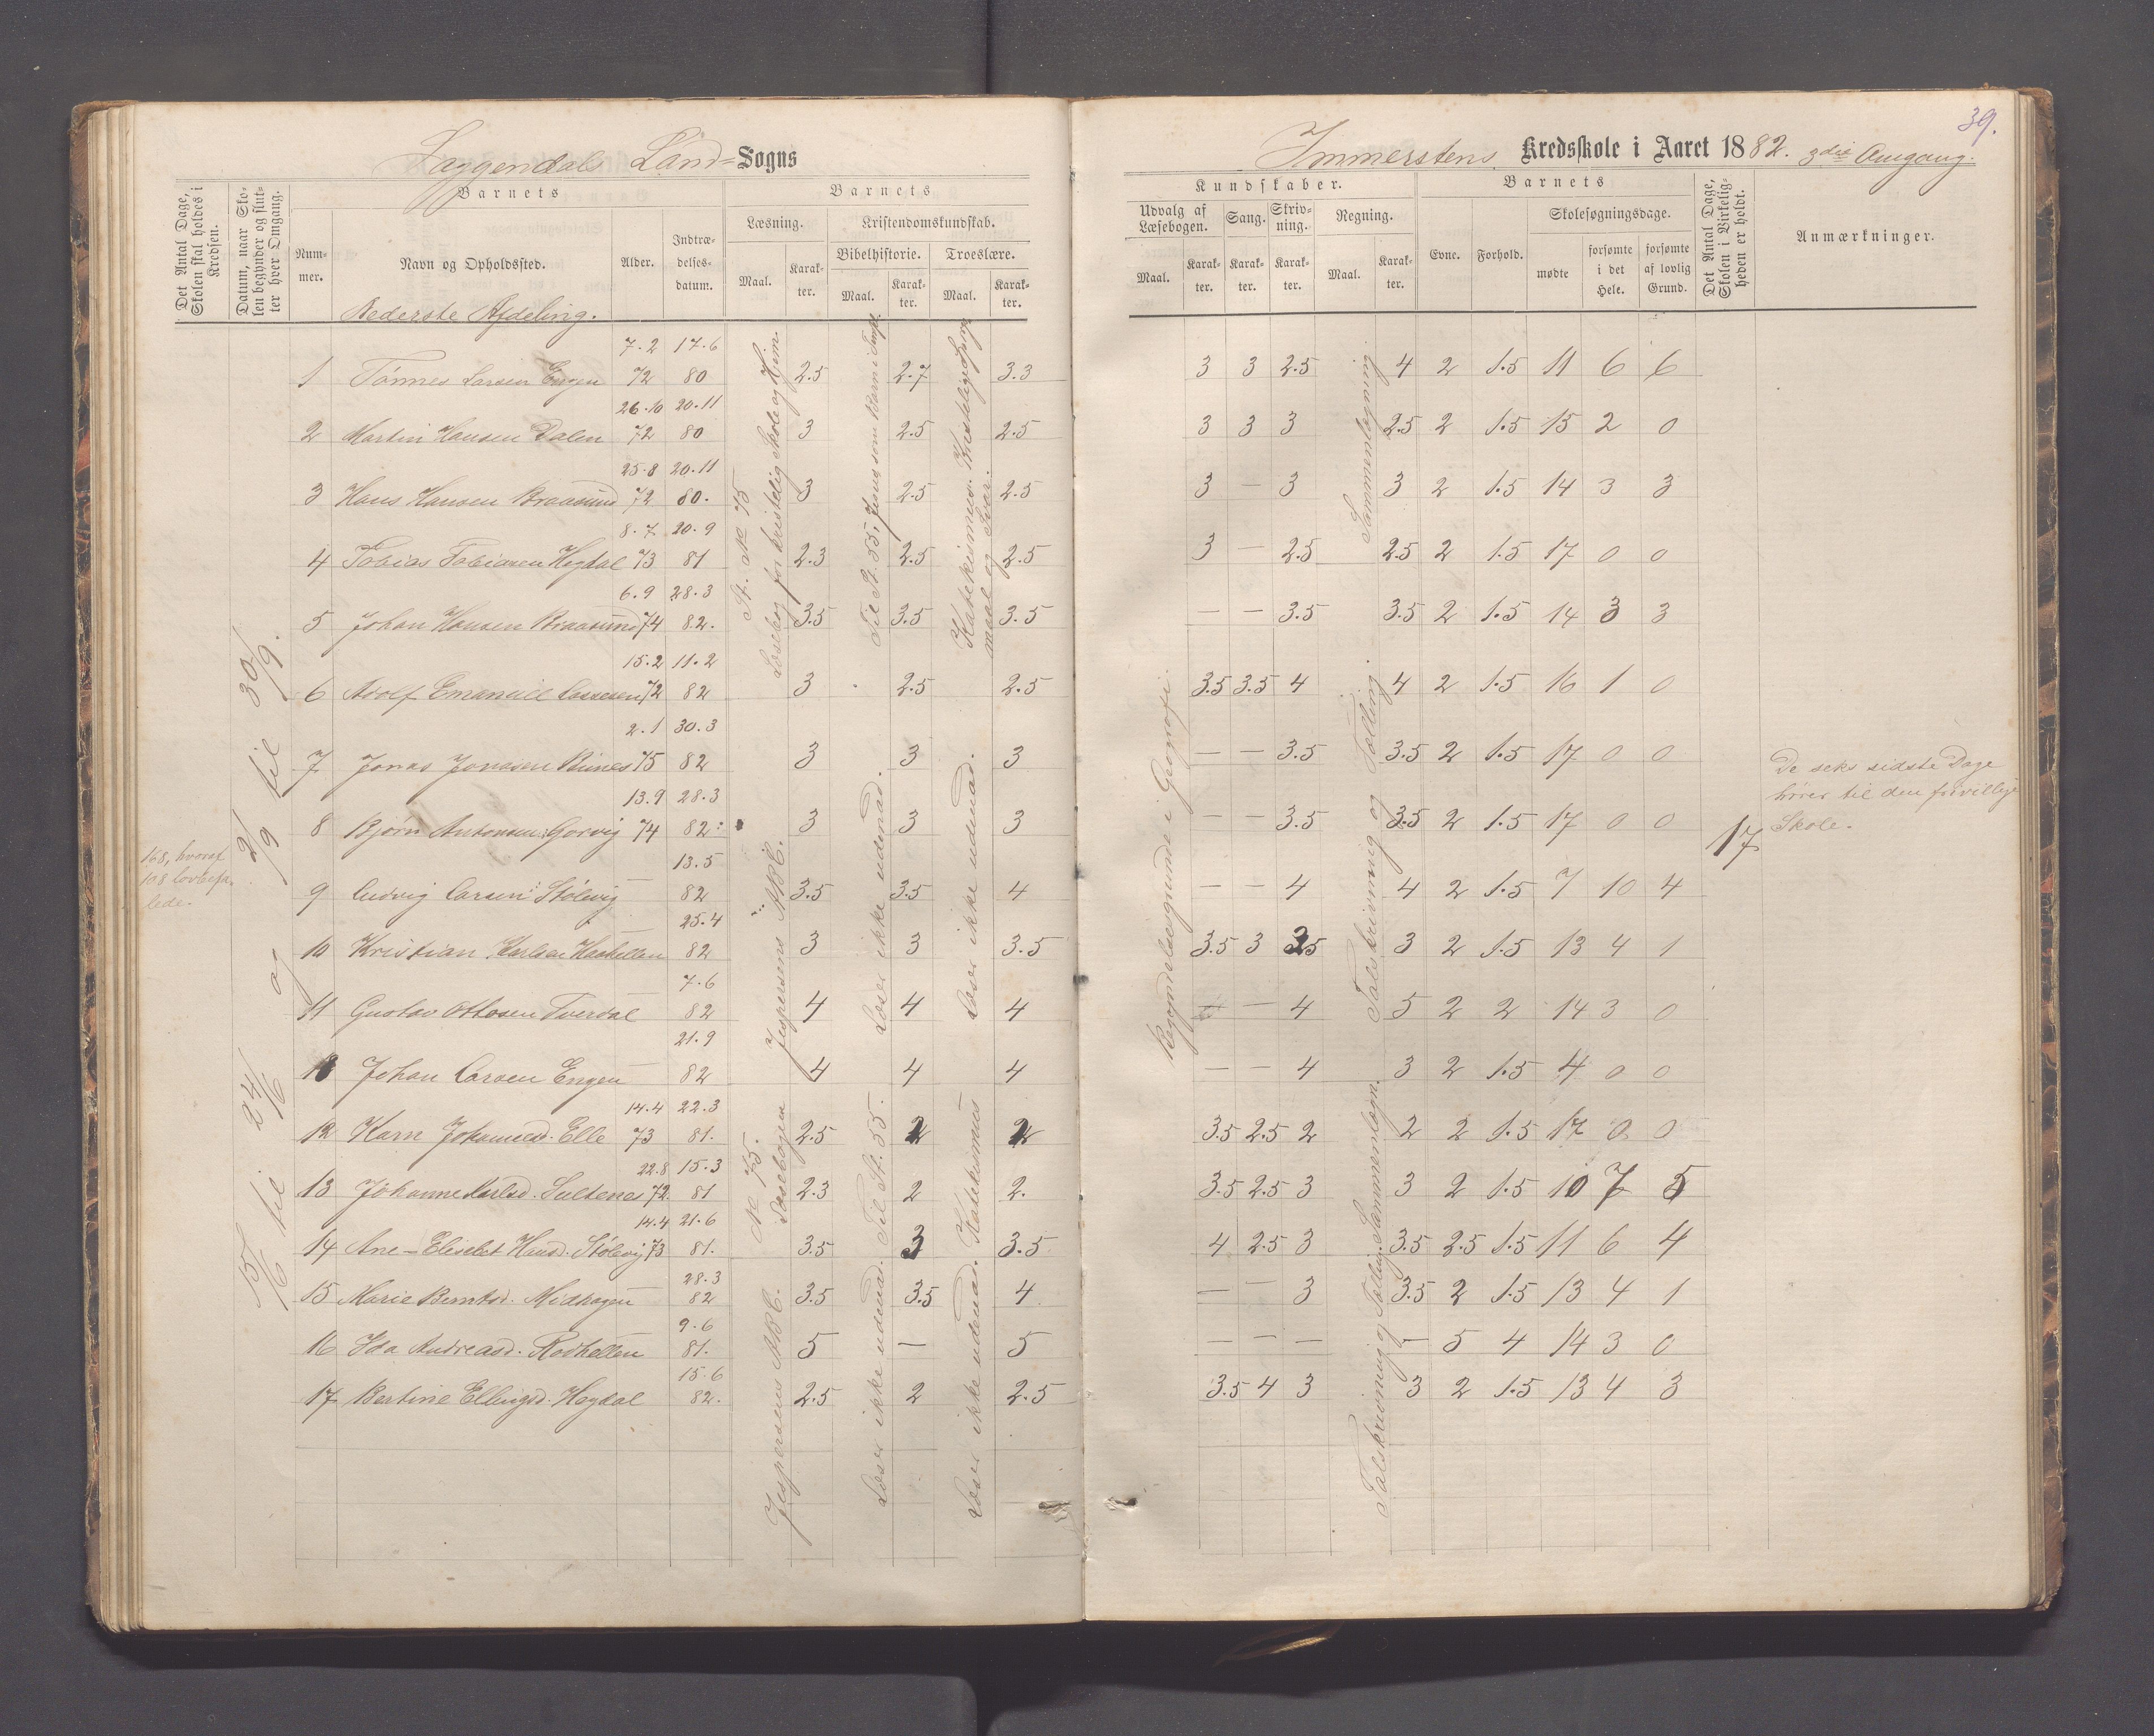 39.
Jaggendals Land= Sogns
Immerstens Kredsskole i Aaret 1882. 3die Omgang.
Det Antal Dage, Skolen skal holdes i Kredsen.
Datum, naar Skolen begynder og slutter hver Omgang.
Barnets
Nummer.
Navn og Opholdssted.
Alder.
Indtrædelsesdatum.
Barnets
Læsning.
Maal.
Karakter.
Kristendomskundskab.
Bibelhistorie.
Maal.
Karakter.
Troeslære.
Maal.
Karakter.
Kundskaber.
Udvalg af Læsebogen.
Maal.
Karakter.
Sang.
Karakter.
Skrivning.
Karakter.
Regning.
Maal.
Karakter.
Barnets
Evne.
Forhold.
Skolesøgningsdage.
mødte
forsømte i det Hele.
forsømte af lovlig Grund.
Det Antal Dage, Skolen i Virkeligheden er holdt.
Anmærkninger.
Nederste Afdeling.
1 Tönnes Larsen Engen 7.2 72 17.6 80 2.5 2.7 3.3 3 3 2.5 4 2 1.5 11 6 6
2 Martin Hansen Dalen 26.10 72 20.11 80 3 2.5 2.5 3 3 3 2.5 2 1.5 15 2 0
3 Hans Hansen Braasund 25.8 72 20.11 80. 3 2.5 2.5 3 — 3 3 2 1.5 14 3 3
4 Tobias Tobiasen Hegdal 8.7 73 20.9 81 2.3 2.5 2.5 3 — 2.5 2.5 2 1.5 17 0 0
5 Johan Hansen Braasund 6.9 74 28.3 82. 3.5 3.5 3.5 — — 3.5 3.5 2 1.5 14 3 3
6 Adolf Emanuel Lassesen 15.2 72 11.2 82 3 2.5 2.5 3.5 3.5 4 4 2 1.5 16 1 0
7 Jonas Jonasen 2.1 75 30.3 82 3 3 3 — — 3.5 3.5 2 1.5 17 0 0
8 Bjørn Antonsen Gorvig 13.9 74 28.3 82 3 3 3 — — 3.5 3.5 2 1.5 17 0 0
9 Ludvig Larsen Stölevig — 13.5 82 3.5 3.5 4 — — 4 4 2 1.5 7 10 4
10 Kristian Karlsen — 25.4 82 3 3 3.5 3.5 3 3 2 1.5 13 4 1
11 Gustav Ottosen Tverdal — 7.6 82 4 4 4 — 4 5 2 2 14 3 0
Johan Larsen Engen — 21.9 82 4 4 4 — — 4 3 2 1.5 4 0 0
12 Karn Johannesd. Elle 14.4 73 22.3 81. 2.5 2 2 3.5 2.5 2 2 2 1.5 17 0 0
13 Johanne Karlsd. Sultenes 22.8 72 15.3 81 2.3 2 2. 3.5 2.5 3 3 2 1.5 10 7 5
14 Ane-Eliselet Hansd. Stölevig 14.4 73 21.6 81. 3.5 3 3.5 4 2.5 3 3.5 2.5 1.5 11 6 4
15 Marie Berntsd. Midhagen — 28.3 82 3.5 3.5 4 — — 3 3.5 2 1.5 13 4 1
16 Ida Andreasd. Rödhellen — 9.6 81. 5 — 5 — — — — 5 4 14 3 0
17 Bertine Ellingsd. Hegdal 15.6 82. 2.5 2 2.5 3.5 4 3 3 2 1.5 13 4 3
168, hvoraf
108 lovbefa-
lede.
15/6 til 24/6 og 2/9 til 30/9.
St. No 75
Læsebog for kristelig Skole og Hjem.
Til St. 55, Jesus som Barn i Templ.
Katekismus. Kristelige Spørgs-
maal og Svar.
Jespersens ABC.
Læser ikke udenad.
Læser ikke udenad.
No 75.
Læsebogen
Til St. 55.
Katekismus
Jespersens ABC.
Læser ikke udenad.
Læser ikke udenad.
Begyndelsesgrunde i Geografi.
Sammenlægning.
Talskrivning og Tælling.
Sammenlægn.
Talskrivning og Tælling.
17
De seks sidste Dage
hører til den frivillige
Skole.